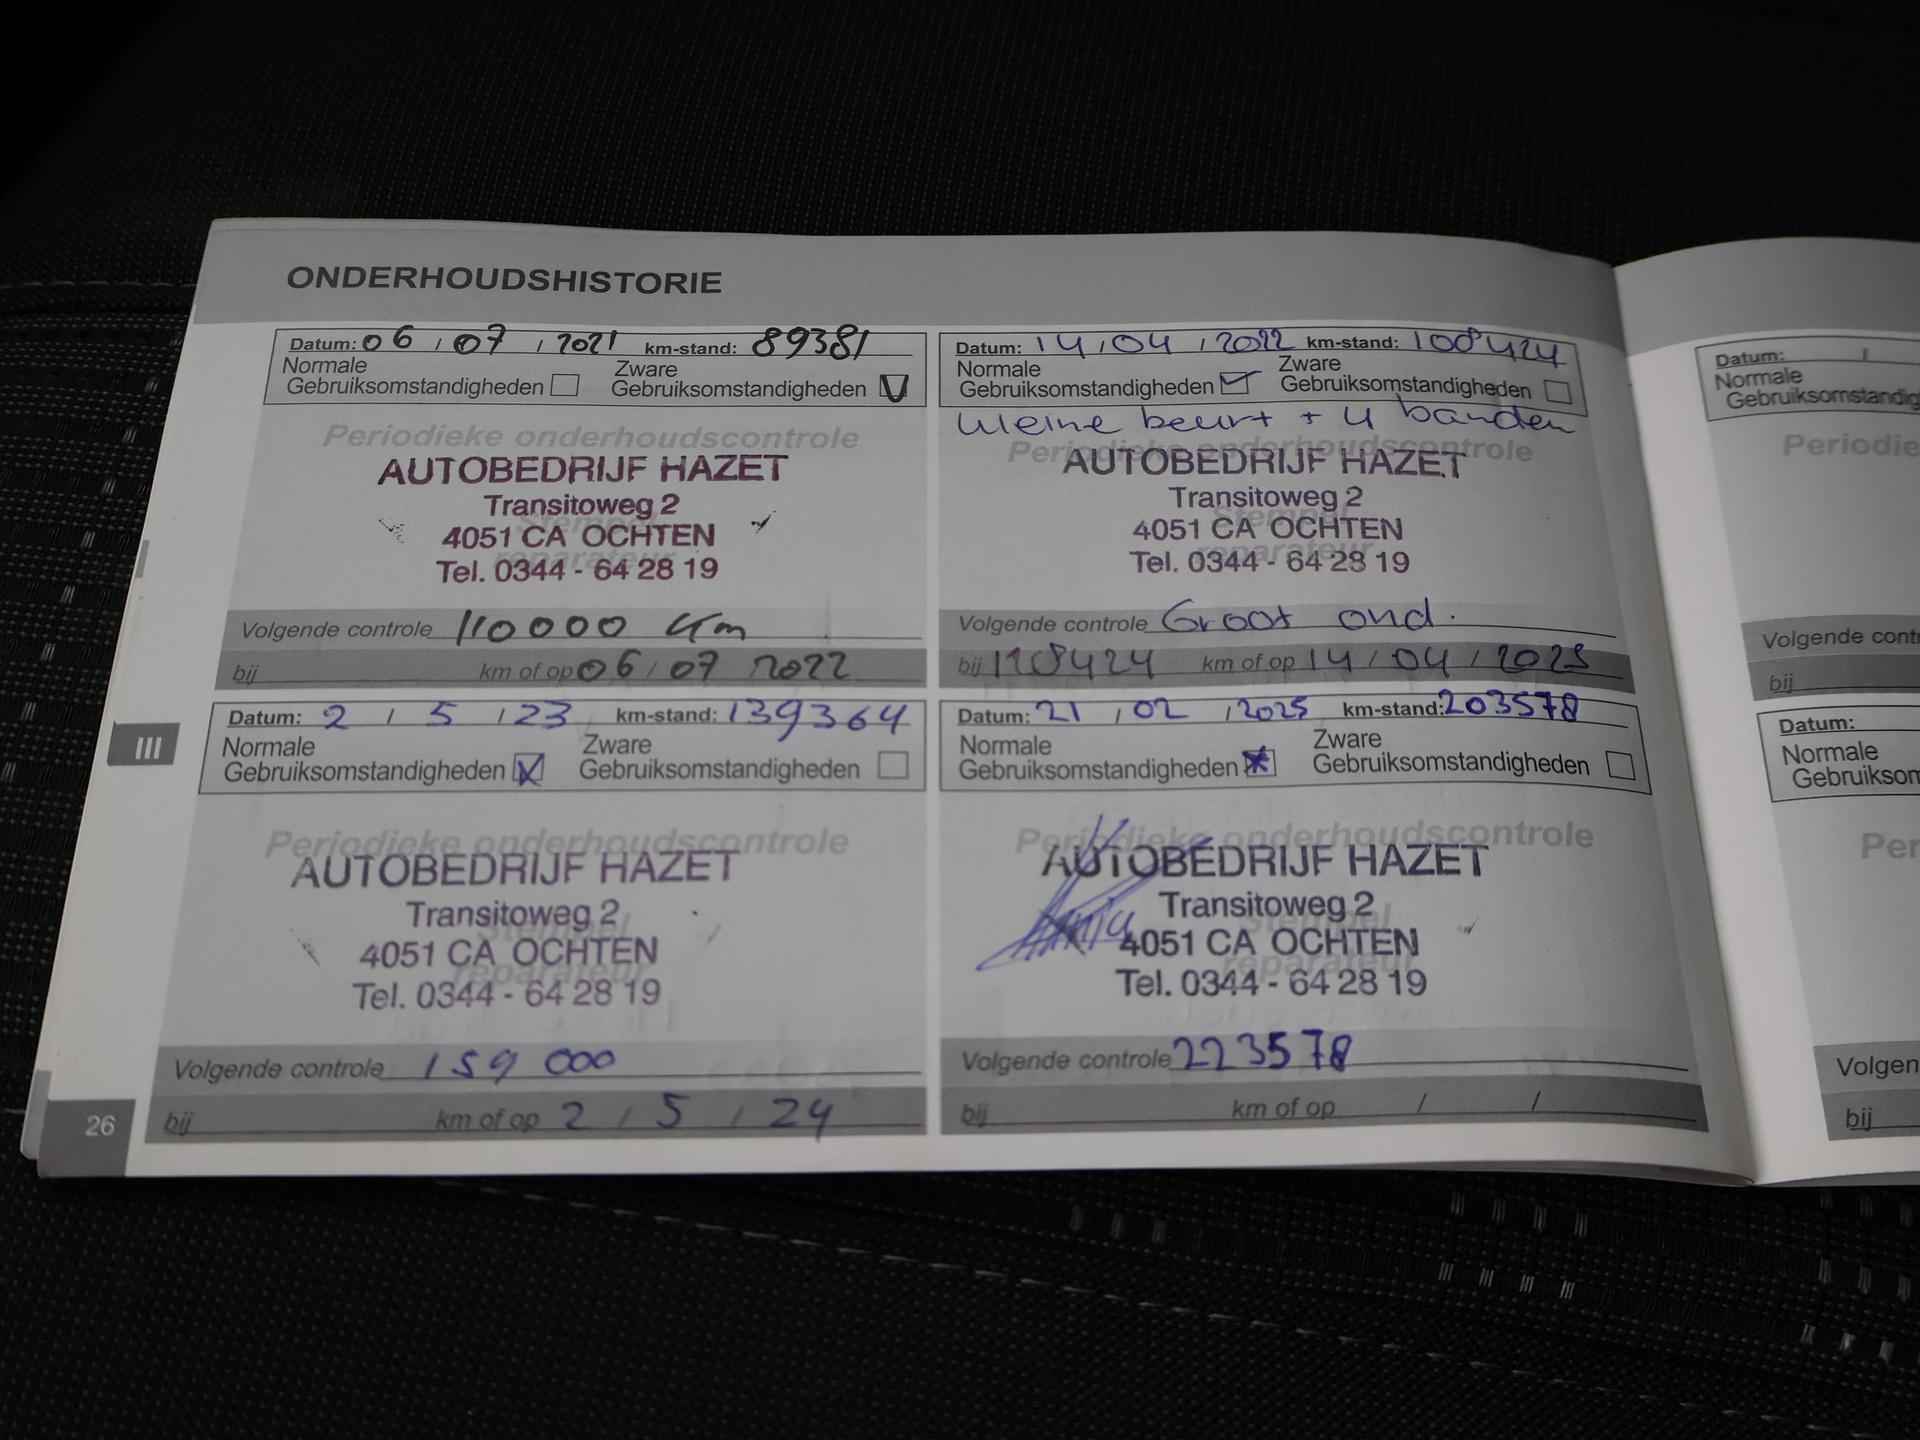 ONDERHOUDSHISTORIE
Datum: 06 / 07 / 2021 km-stand: 89381
Normale Zware
Gebruiksomstandigheden Gebruiksomstandigheden V
Periodieke onderhoudscontrole
AUTOBEDRIJF HAZET
Transitoweg 2
Stempel
4051 CA OCHTEN
reparateur
Tel. 0344 - 64 28 19
Volgende controle 110000 Km
bij km of op 06 / 07 2022
Datum: 14 / 04 / 2022 km-stand: 108424
Normale Zware
Gebruiksomstandigheden Gebruiksomstandigheden
kleine beurt + 4 banden
Periodieke onderhoudscontrole
AUTOBEDRIJF HAZET
Transitoweg 2
Stempel
4051 CA OCHTEN
reparateur
Tel. 0344 - 64 28 19
Volgende controle Groot ond.
bij 128424 km of op 14 / 04 / 2023
Datum: 2 / 5 / 23 km-stand: 139364
Normale Zware
Gebruiksomstandigheden X Gebruiksomstandigheden
Periodieke onderhoudscontrole
AUTOBEDRIJF HAZET
Transitoweg 2
Stempel
4051 CA OCHTEN
reparateur
Tel. 0344 - 64 28 19
Volgende controle 159 000
bij km of op 2 / 5 / 24
Datum: 21 / 02 / 2025 km-stand: 203578
Normale Zware
Gebruiksomstandigheden Gebruiksomstandigheden
Periodieke onderhoudscontrole
AUTOBEDRIJF HAZET
Transitoweg 2
Stempel
4051 CA OCHTEN
reparateur
Tel. 0344 - 64 28 19
Volgende controle 223578
bij km of op / /
III
26
Datum: /
Normale
Gebruiksomstandig
Periodie
Volgende cont
bij
Datum:
Normale
Gebruiksom
Per
Volgen
bij